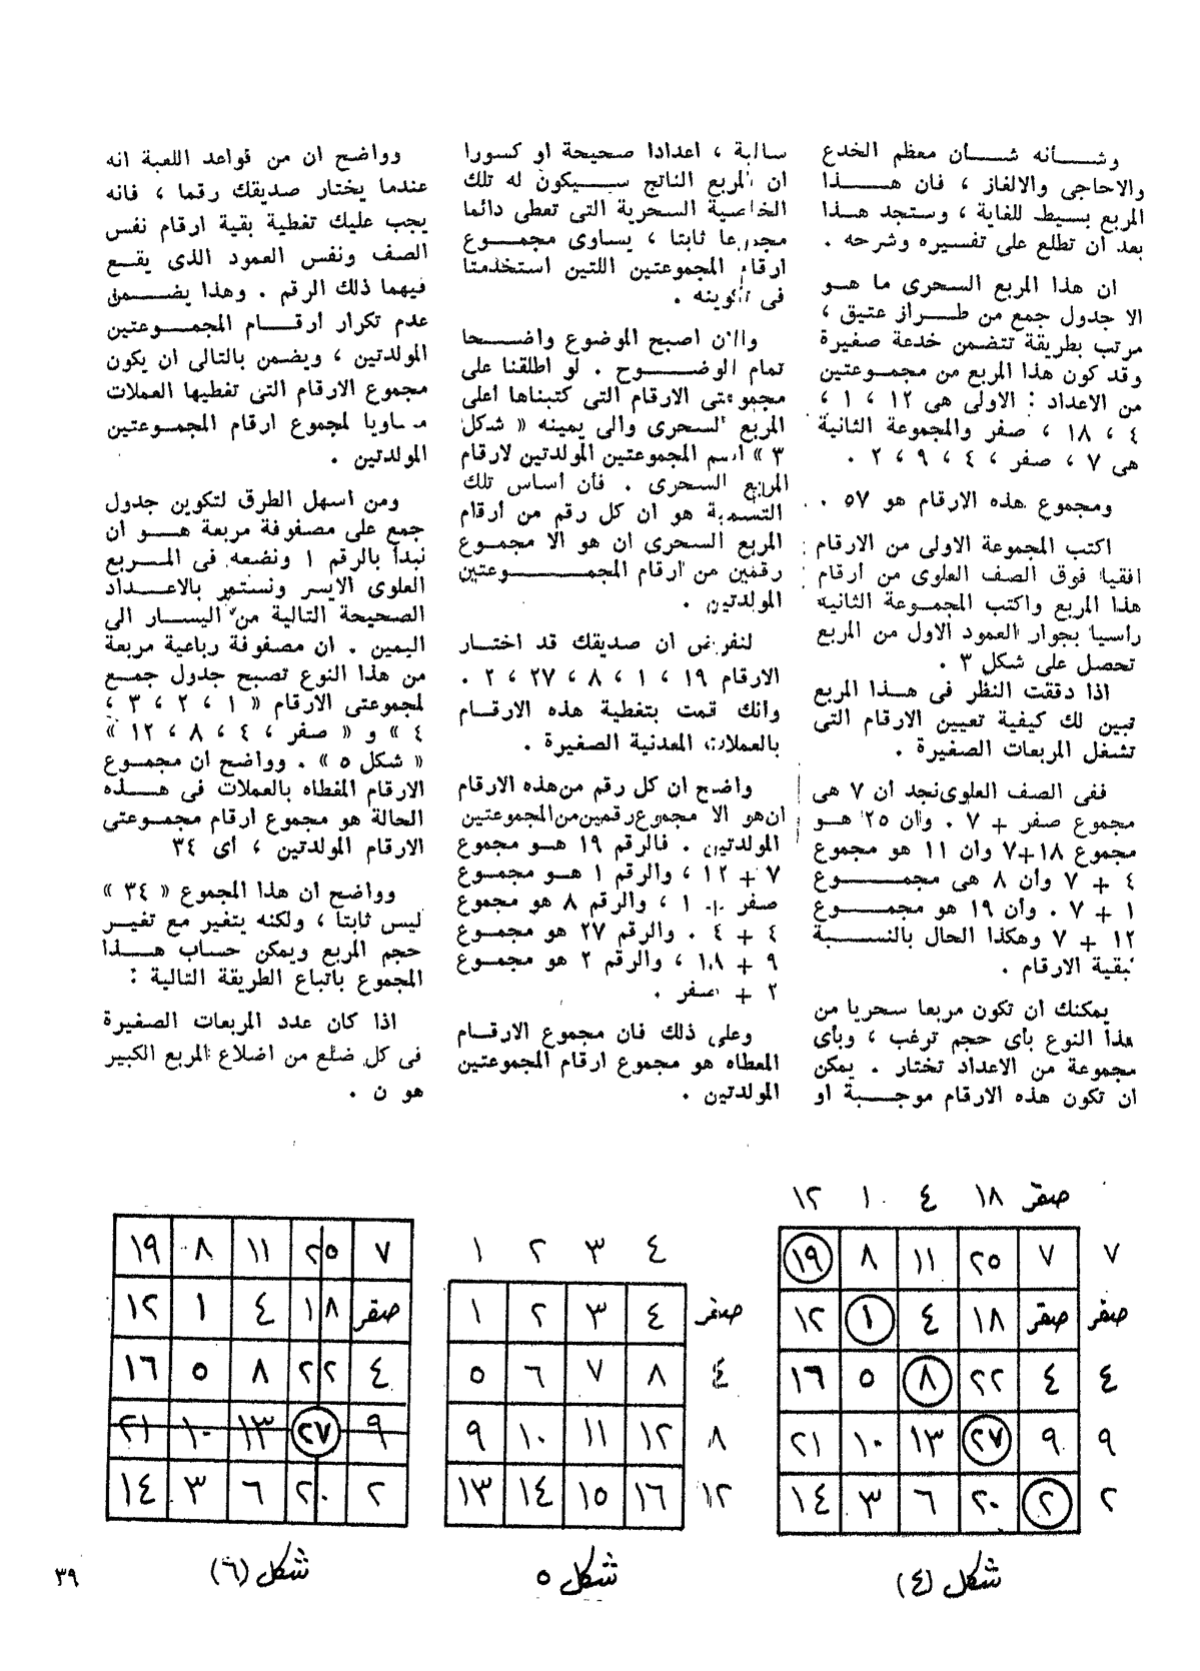 وشـــأنه شـــان معظم الخدع
والاحاجى والالغاز ، فان هـــذا
المربع بسيط للغاية ، وستجد هـذا
بعد أن تطلع على تفسيره وشرحه .
ان هذا المربع السحرى ما هـو
الا جدول جمع من طـراز عتيق ،
مرتب بطريقة تتضمن خدعة صغيرة
وقد كون هذا المربع من مجمـوعتين
من الاعداد : الاولى هى ١٢ ، ١ ،
٤ ، ١٨ ، صفر والمجموعة الثانية
هى ٧ ، صفر ، ٤ ، ٩ ، ٢ .
ومجموع هذه الارقام هو ٥٧ .
اكتب المجموعة الاولى من الارقام
افقيا فوق الصف العلوى من أرقام
هذا المربع واكتب المجمـوعة الثانية
رأسيا بجوار العمود الاول من المربع
تحصل على شكل ٣ .
اذا دققت النظر فى هـذا المربع
تبين لك كيفية تعيين الارقام التى
تشغل المربعات الصغيرة .
ففى الصف العلوى نجد أن ٧ هى
مجموع صفر + ٧ . وأن ٢٥ هـو
مجموع ١٨+٧ وأن ١١ هو مجموع
٤ + ٧ وأن ٨ هى مجمـــوع
١ + ٧ . وأن ١٩ هو مجمـــوع
١٢ + ٧ وهكذا الحال بالنســـبة
لبقية الارقام .
يمكنك ان تكون مربعا سحريا من
هذا النوع بأى حجم ترغب ، وبأى
مجموعة من الاعداد تختار . يمكن
ان تكون هذه الارقام موجـــبة او
سالبة ، اعدادا صحيحة او كسورا
ان المربع الناتج ســيكون له تلك
الخاصية السحرية التى تعطى دائما
مجموعا ثابتا ، يساوى مجمـــوع
ارقام المجموعتين اللتين استخدمتا
فى تكوينه .
والآن اصبح الموضوع واضـــحا
تمام الوضــــوح . لو اطلقنا على
مجموعتى الارقام التى كتبناها أعلى
المربع السحرى والى يمينه « شكل
٣ » اسم المجموعتين المولدتين لارقام
المربع السحرى . فأن أساس تلك
التسمية هو ان كل رقم من أرقام
المربع السحرى ان هو الا مجموع
رقمين من أرقام المجمـــــوعتين
المولدتين .
لنفرض أن صديقك قد اختـار
الارقام ١٩ ، ١ ، ٨ ، ٢٧ ، ٢ .
وانك قمت بتغطية هذه الارقـام
بالعملات المعدنية الصغيرة .
واضح ان كل رقم من هذه الارقام
ان هو الا مجموع رقمين من المجموعتين
المولدتين . فالرقم ١٩ هـو مجموع
٧ + ١٢ ، والرقم ١ هـو مجمـوع
صفر + ١ ، والرقم ٨ هو مجموع
٤ + ٤ . والرقم ٢٧ هو مجمـوع
٩ + ١٨ ، والرقم ٢ هو مجمـوع
٢ + صفر .
وعلى ذلك فان مجموع الارقـام
المعطاه هو مجموع ارقام المجموعتين
المولدتين .
وواضح ان من قواعد اللعبة انه
عندما يختار صديقك رقما ، فانه
يجب عليك تغطية بقية ارقام نفس
الصف ونفس العمود الذى يقـع
فيهما ذلك الرقم . وهذا يضـــمن
عدم تكرار أرقـام المجمــوعتين
المولدتين ، ويضمن بالتالى ان يكون
مجموع الارقام التى تغطيها العملات
مساويا لمجموع ارقام المجمـوعتين
المولدتين .
ومن أسهل الطرق لتكوين جدول
جمع على مصفوفة مربعة هـو أن
نبدأ بالرقم ١ ونضعه فى المـربع
العلوى الايسر ونستمر بالاعـداد
الصحيحة التالية من اليسـار الى
اليمين . ان مصفوفة رباعية مربعة
من هذا النوع تصبح جدول جمـع
لمجموعتى الارقام « ١ ، ٢ ، ٣ ،
٤ » و « صفر ، ٤ ، ٨ ، ١٢ »
« شكل ٥ » . وواضح ان مجمـوع
الارقام المغطاه بالعملات فى هـــذه
الحالة هو مجموع أرقام مجمـوعتى
الارقام المولدتين ، أى ٣٤
وواضح ان هذا المجموع « ٣٤ »
ليس ثابتا ، ولكنه يتغير مع تغيـر
حجم المربع ويمكن حساب هـــذا
المجموع باتباع الطريقة التالية :
اذا كان عدد المربعات الصغيرة
فى كل ضلع من اضلاع المربع الكبير
هو ن .
١٢ ١ ٤ ١٨ صفر
١٩ ٨ ١١ ٢٥ ٧ ٧
١٢ ١ ٤ ١٨ صفر صفر
١٦ ٥ ٨ ٢٢ ٤ ٤
٢١ ١٠ ١٣ ٢٧ ٩ ٩
١٤ ٣ ٦ ٢٠ ٢ ٢
شكل (٤)
١ ٢ ٣ ٤
١ ٢ ٣ ٤ صفر
٥ ٦ ٧ ٨ ٤
٩ ١٠ ١١ ١٢ ٨
١٣ ١٤ ١٥ ١٦ ١٢
شكل ٥
١٩ ٨ ١١ ٢٥ ٧
١٢ ١ ٤ ١٨ صفر
١٦ ٥ ٨ ٢٢ ٤
٢١ ١٠ ١٣ ٢٧ ٩
١٤ ٣ ٦ ٢٠ ٢
شكل (٦)
٣٩